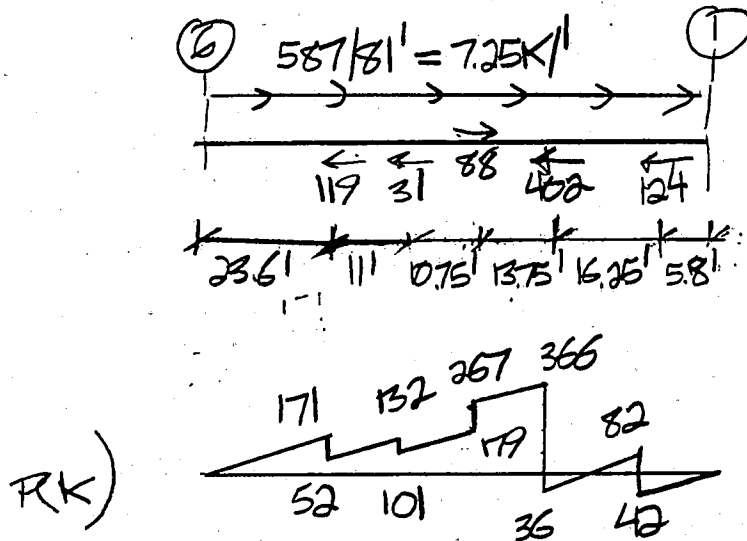 6 1
587/81' = 7.25K/'
119 31 88 402 124
23.6' 11' 10.75' 13.75' 16.25' 5.8'
171 132 267 366 82
52 101 179 36 42
P(K)